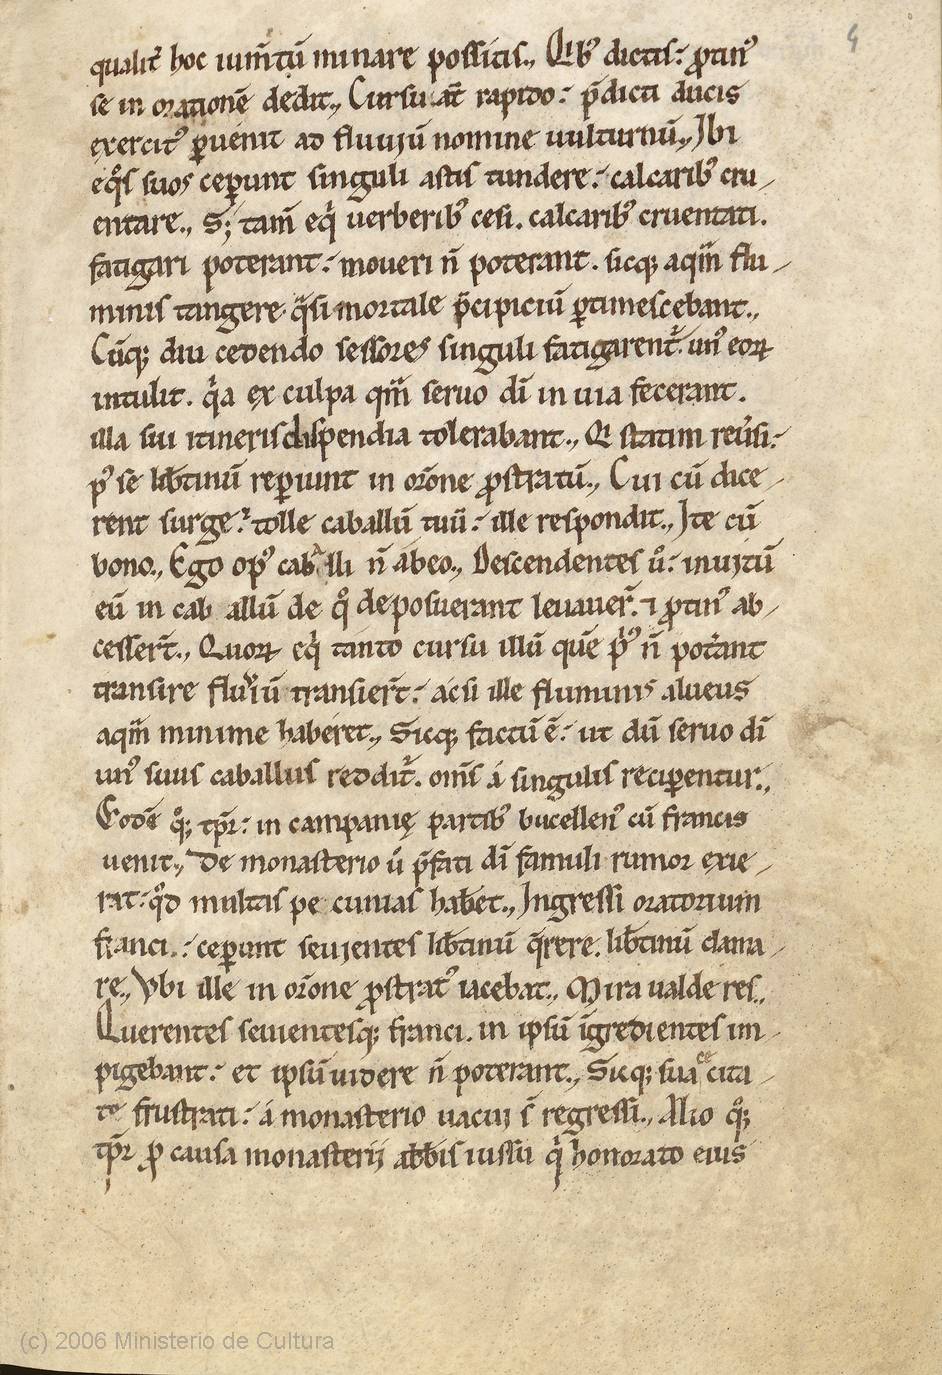 4
qualit̄ hoc ium̄tū minare possitis., Qͥbꝰ dictis: ꝓtinꝰ
se in orationē dedit., Cursu aūt rapido: p̄dicti ducis
exercitꝰ ꝑuenit ad fluuiū nomine uulturnū., Ibi
eqͦs suos ceꝑunt singuli astis tundere: calcaribꝰ cru
entare., S; tam̄ eqͥ uerberibꝰ cesi. calcaribꝰ cruentati.
fatigari poterant: moueri n̄ poterant. sicqꝫ aqͣm flu
minis tangere qͣsi mortale p̄cipiciū ꝑtimescebant.,
Cūqꝫ diu cedendo sessores singuli fatigarent᷑. unꝰ eoꝝ
intulit. qͥa ex culpa qͣm seruo dī in uia fecerant.
illa sui itineris dispendia tolerabant., Qͥ statim reūsi:
pꝰ se lib̄tinū reꝑiunt in or̄one ꝓstratū., Cui cū dice
rent surge: tolle caballū tuū: ille respondit., Ite cū
bono., Ego opꝰ caballi n̄ abeo., Descendentes ū: inuitū
eū in cab allū de qͦ deposuerant leuauer̄. ⁊ ꝓtinꝰ ab
cesser̄t., Quoꝝ eqͥ tanto cursu illū quē pͥꝰ n̄ pot̄ant
transire fluuiū transier̄t: acsi ille fluminis alueus
aqͣm minime haberet., Sicqꝫ factū ē: ut dū seruo dī
unꝰ suus caballus reddit᷑. om̄s á singulis reciꝑentur.,
Eodē qͦqꝫ tp̄r: in campanię partibꝰ bucellenꝰ cū francis
uenit., De monasterio ū p̄fati dī famuli rumor exie
rat: qͦd multas pe cunias hab̄et., Ingressi oratorium
franci.: ceꝑunt seuientes lib̄tinū q̄rere. lib̄tinū clama
re., Vbi ille in or̄one ꝓstratꝰ iacebat., Mira ualde res.,
Querentes seuientesqꝫ franci. in ipsū īgredientes im
pigebant: et ipsū uidere n̄ poterant., Sicqꝫ sua ce cita
te frustrati: á monasterio uacui s̄ regressi., Alio qͦqꝫ
tp̄r ꝓ causa monasterii ab̄bis iussu qͥ honorato eius
(c) 2006 Ministerio de Cultura